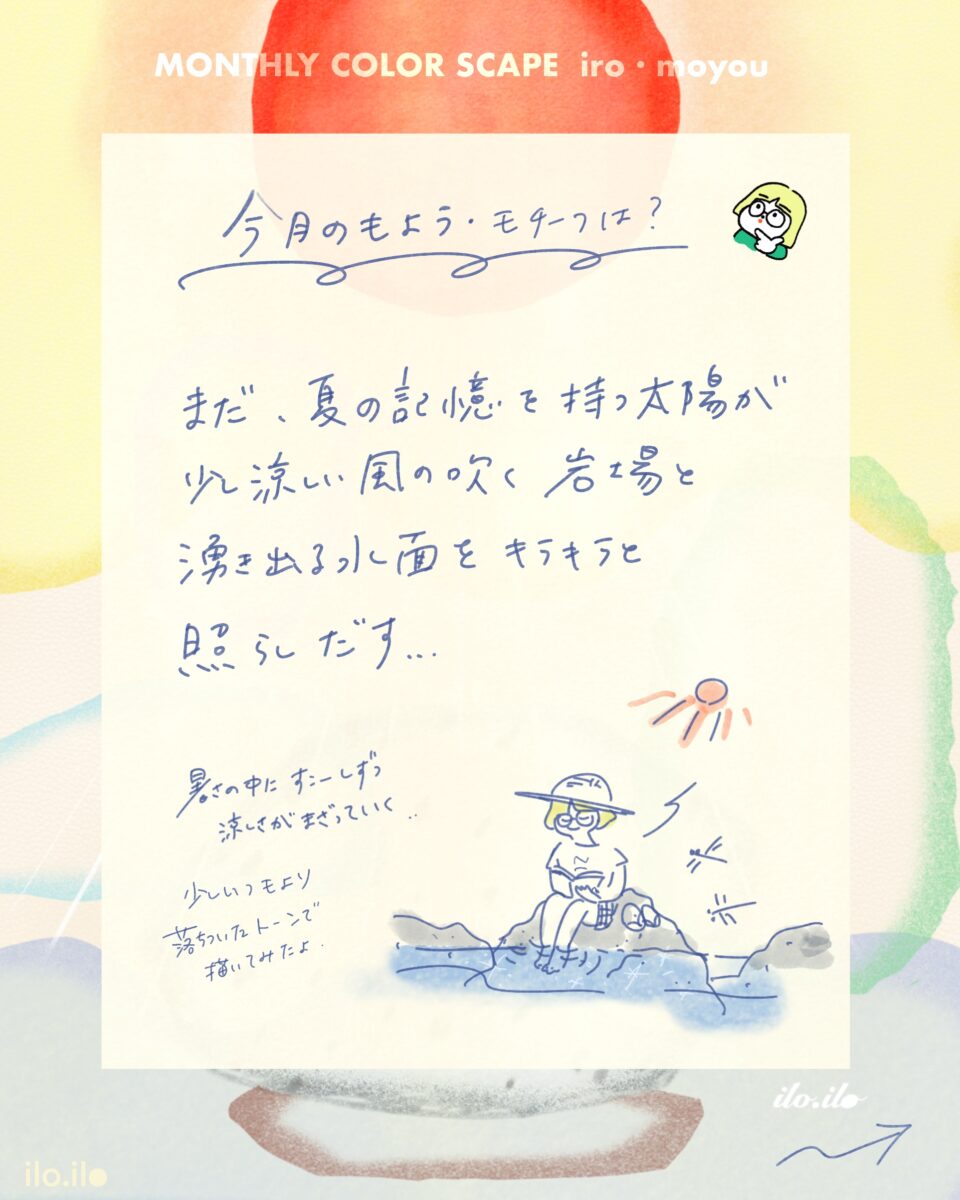 MONTHLY COLOR SCAPE iro・moyou
今月のもよう・モチーフは？
まだ、夏の記憶を持つ太陽が
少し涼しい風の吹く岩場と
湧き出る水面をキラキラと
照らしだす...
暑さの中にすこーしずつ
涼しさがまざっていく..
少しいつもより
落ちついたトーンで
描いてみたよ.
ilo.ilo
ilo.ilo